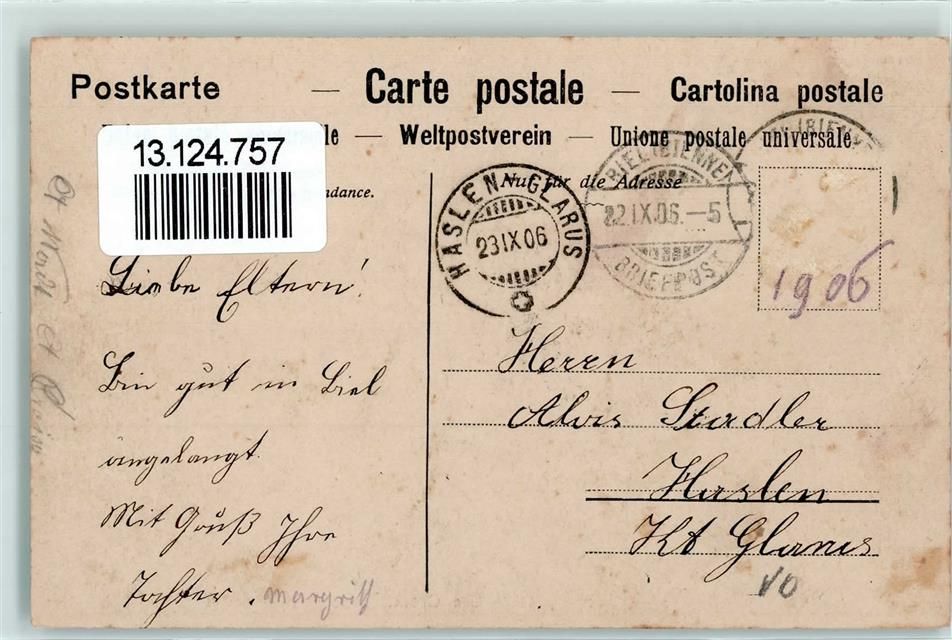 Postkarte — Carte postale — Cartolina postale
— Weltpostverein — Unione postale universale.
13.124.757
dance.
Nur für die Adresse
HASLEN-GLARUS
23 IX 06
BIEL (BIENNE)
22.IX.06.–5
BRIEFPOST
(BIENNE
1906
Liebe Eltern!
Bin gut in Biel
angelangt.
Mit Gruß Ihre
Tochter. Margrith
Herrn
Alois Stadler
Haslen
Kt Glarus